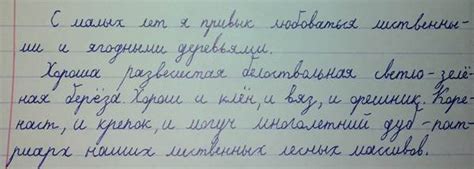 С малых лет я привык любоваться лиственны-
ми и ягодными деревьями.
Хороша развесистая белоствольная светло-зелё-
ная берёза Хорош и клён, и вяз, и орешник. Коре-
наст, и крепок, и могуч многолетний дуб-пат-
риарх наших лиственных лесных массивов.